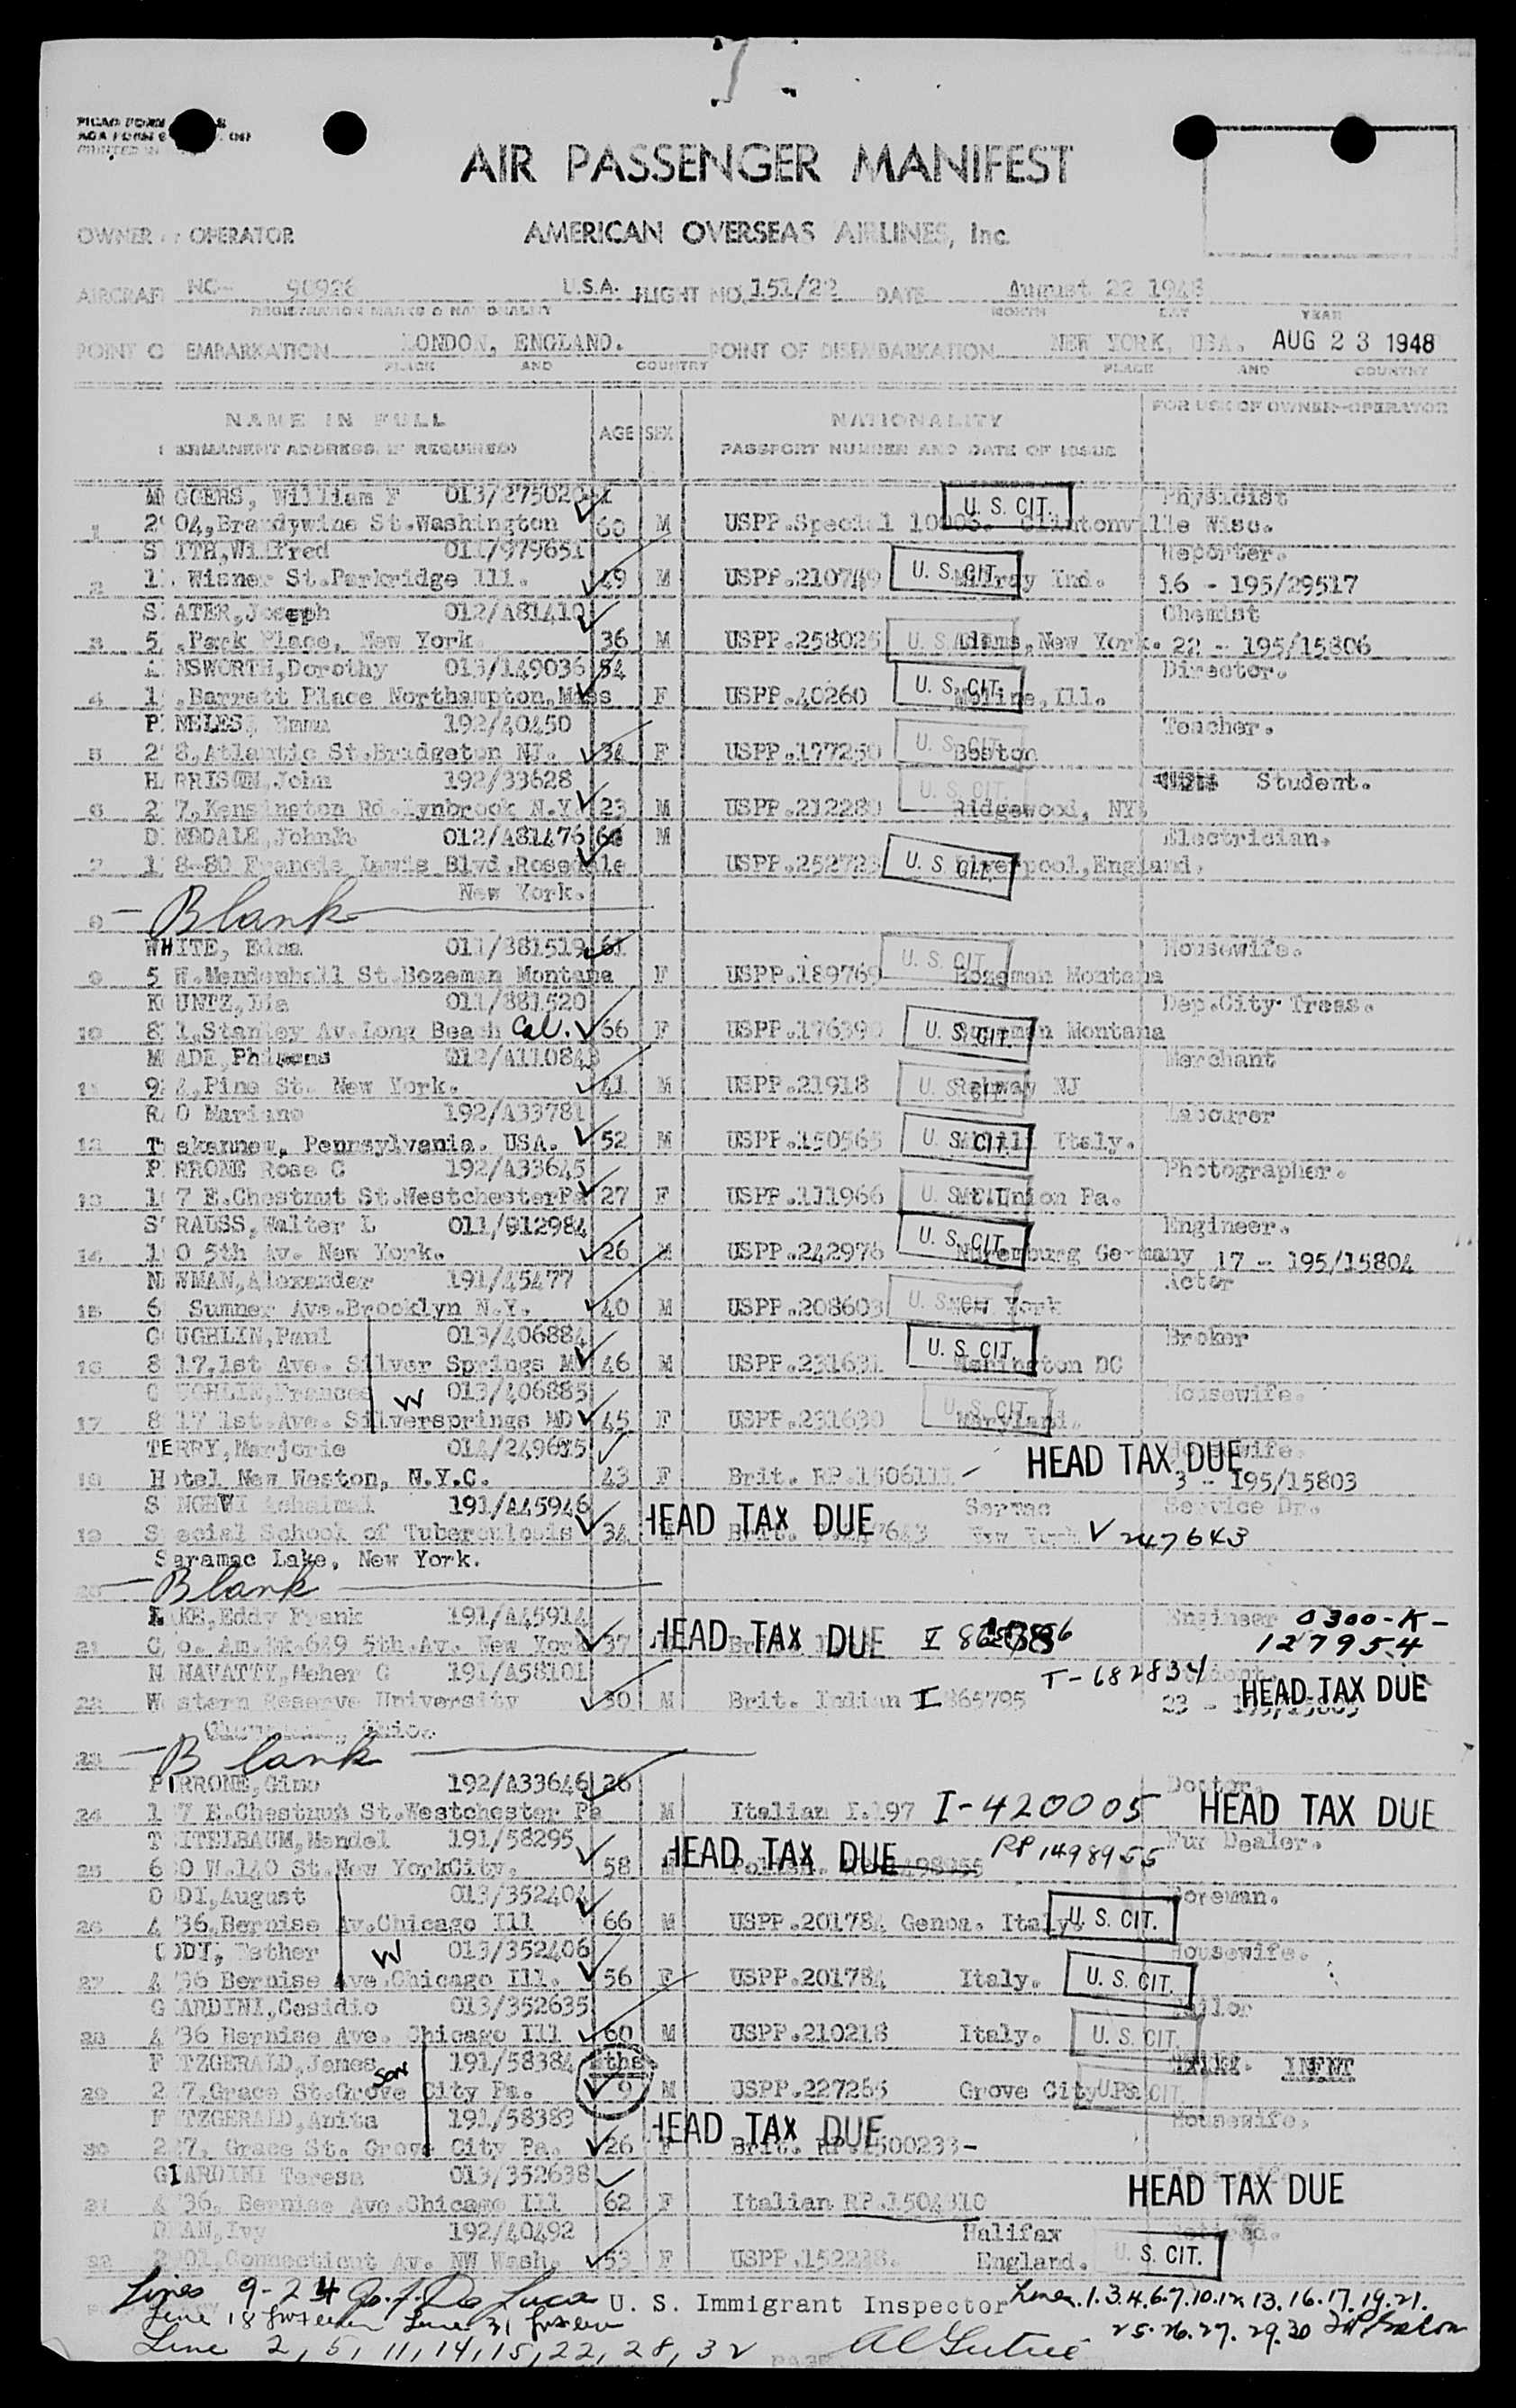 AIR PASSENGER MANIFEST
OWNER OPERATOR AMERICAN OVERSEAS AIRLINES, Inc.
AIRCRAFT NC- 90926 U.S.A. FLIGHT NO. 151/22 DATE August 22 1948
REGISTRATION MARKS & NATIONALITY MONTH DAY YEAR
POINT O EMBARKATION LONDON, ENGLAND. POINT OF DISEMBARKATION NEW YORK, USA. AUG 23 1948
PLACE AND COUNTRY PLACE AND COUNTRY
NAME IN FULL AGE SEX NATIONALITY FOR USE OF OWNER-OPERATOR
ERMANENT ADDRESS, IF REQUIRED) PASSPORT NUMBER AND DATE OF ISSUE
M GGERS, William F U. S. CIT. Physicist
1 2 04, Brandywine St. Washington 60 M USPP. Special Clintonville Wisc.
S ITH, Wilfred 011/979651 Reporter.
2 1 . Wisner St. Parkridge Ill. 49 M USPP. U. S. CIT. Ind. 16 - 195/29517
S ATER, Joseph 012/A81410 Chemist
3 5 , Park Place, New York 36 M USPP. 258025 U. S. New York. 22 - 195/15806
NSWORTH, Dorothy 013/149036 54 Director.
4 1 , Barrett Place Northampton, Mass F USPP. 40260 U. S. CIT. Moline, Ill.
P NELES, Emma 192/40450 Teacher.
5 2 8, Atlantic St. Bridgeton NJ. 34 F USPP. 177250 U. S. CIT. Boston
H RRISON, John 192/33628 Student.
6 2 7, Kensington Rd. Lynbrook N.Y. 23 M USPP. 212280 U. S. CIT. Ridgewood, NY.
D NSDALE, John 012/A81476 M Electrician.
7 1 8-80 Francis Lewis Blvd. Rosedale USPP. 252723 U. S. CIT. Liverpool, England.
New York.
Blank
WHITE, Edna 011/381519 61 Housewife.
9 5 W. Mendenhall St. Bozeman Montana F USPP. 189769 U. S. CIT. Bozeman Montana
K UNTZ, 011/881520 Dep. City Treas.
10 8 1, Stanley Av. Long Beach Cal. 66 F USPP. 176390 U. S. CIT. Bozeman Montana
M ADE, 012/A110843 Merchant
11 9 4, Pine St. New York. 41 M USPP. 21918 U. S. CIT. Rahway NJ
R O Mariano 192/A33781 Labourer
12 T skannew, Pennsylvania. USA. 52 M USPP. 150565 U. S. CIT. Italy.
P RRONE Rose C 192/A33645 Photographer.
13 1 7 E. Chestnut St. Westchester Pa 27 F USPP. 111966 U. S. CIT. Mt. Union Pa.
S RAUSS, Walter L 011/912984 Engineer.
14 1 0 5th Av. New York. 26 M USPP. 242976 U. S. CIT. Nuremburg Germany 17 - 195/15804
N WMAN, Alexander 191/45477 Actor
15 6 Sumner Ave. Brooklyn N.Y. 40 M USPP. 208603 U. S. CIT. New York
C UGHLIN, Paul 013/406884 Broker
16 8 17, 1st Ave. Silver Springs Md 46 M USPP. 231631 U. S. CIT. DC
C UGHLIN, Frances W 013/406885 Housewife.
17 8 17 1st. Ave. Silversprings MD 45 F USPP. 231630 U. S. CIT. Maryland.
TERRY, Marjorie 014/249615 HEAD TAX DUE Housewife.
18 Hotel New Weston, N.Y.C. 43 F Brit. RP. 3 - 195/15803
S NGHVI 191/A45946 HEAD TAX DUE Service Dr.
19 Special School of Tuberculosis 34 Brit. New York V 247643
Saramac Lake, New York.
Blank
LAKE, Eddy Frank 191/A45914 Engineer 0300-K-
21 C o. Am. Ex. 649 5th. Av. New York 37 HEAD TAX DUE 127954
N NAVATTY, Meher G 191/A58101 T-682834
22 Western Reserve University 30 M Brit. Indian I 865795 HEAD TAX DUE
Blank
PERRONE, Gino 192/A33646 26 Doctor.
24 1 7 E. Chestnut St. Westchester Pa M Italian I-420005 HEAD TAX DUE
T ITELBAUM, Mendel 191/58295 HEAD TAX DUE RP 1498955 Fur Dealer.
25 6 0 W. 140 St. New York City. 58
O DI, August 013/352404 Foreman.
26 4 36, Bernise Av. Chicago Ill 66 M USPP. 201784 Genoa. Italy U. S. CIT.
ODI, Esther W 013/352406 Housewife.
27 4 36 Bernise Ave. Chicago Ill. 56 F USPP. 201784 Italy. U. S. CIT.
G ARDINI, Casidio 013/352635 Tailor
28 4 36 Bernise Ave. Chicago Ill 60 M USPP. 210218 Italy. U. S. CIT.
F TZGERALD, James son 191/58384 mths. INFNT
29 2 7, Grace St. Grove City Pa. 9 M USPP. 227265 Grove City Pa U. S. CIT.
F TZGERALD, Anita 191/58383 HEAD TAX DUE Housewife.
30 2 7, Grace St. Grove City Pa. 26 F Brit. RP. 1500233-
GIARDINI Teresa 013/352638 HEAD TAX DUE
31 4 36, Bernise Ave. Chicago Ill 62 F Italian RP. 1504310
D AN, Ivy 192/40492 Halifax Retired.
32 2 01, Connecticut Av. NW Wash. 53 F USPP. England. U. S. CIT.
Lines 9-24 U. S. Immigrant Inspector Lines. 1. 3. 4. 6. 7. 10. 12 13. 16. 17. 19. 21.
Line 18 Line 31 25. 26. 27. 29. 30
Line 2, 5, 11, 14, 15, 22, 28, 32